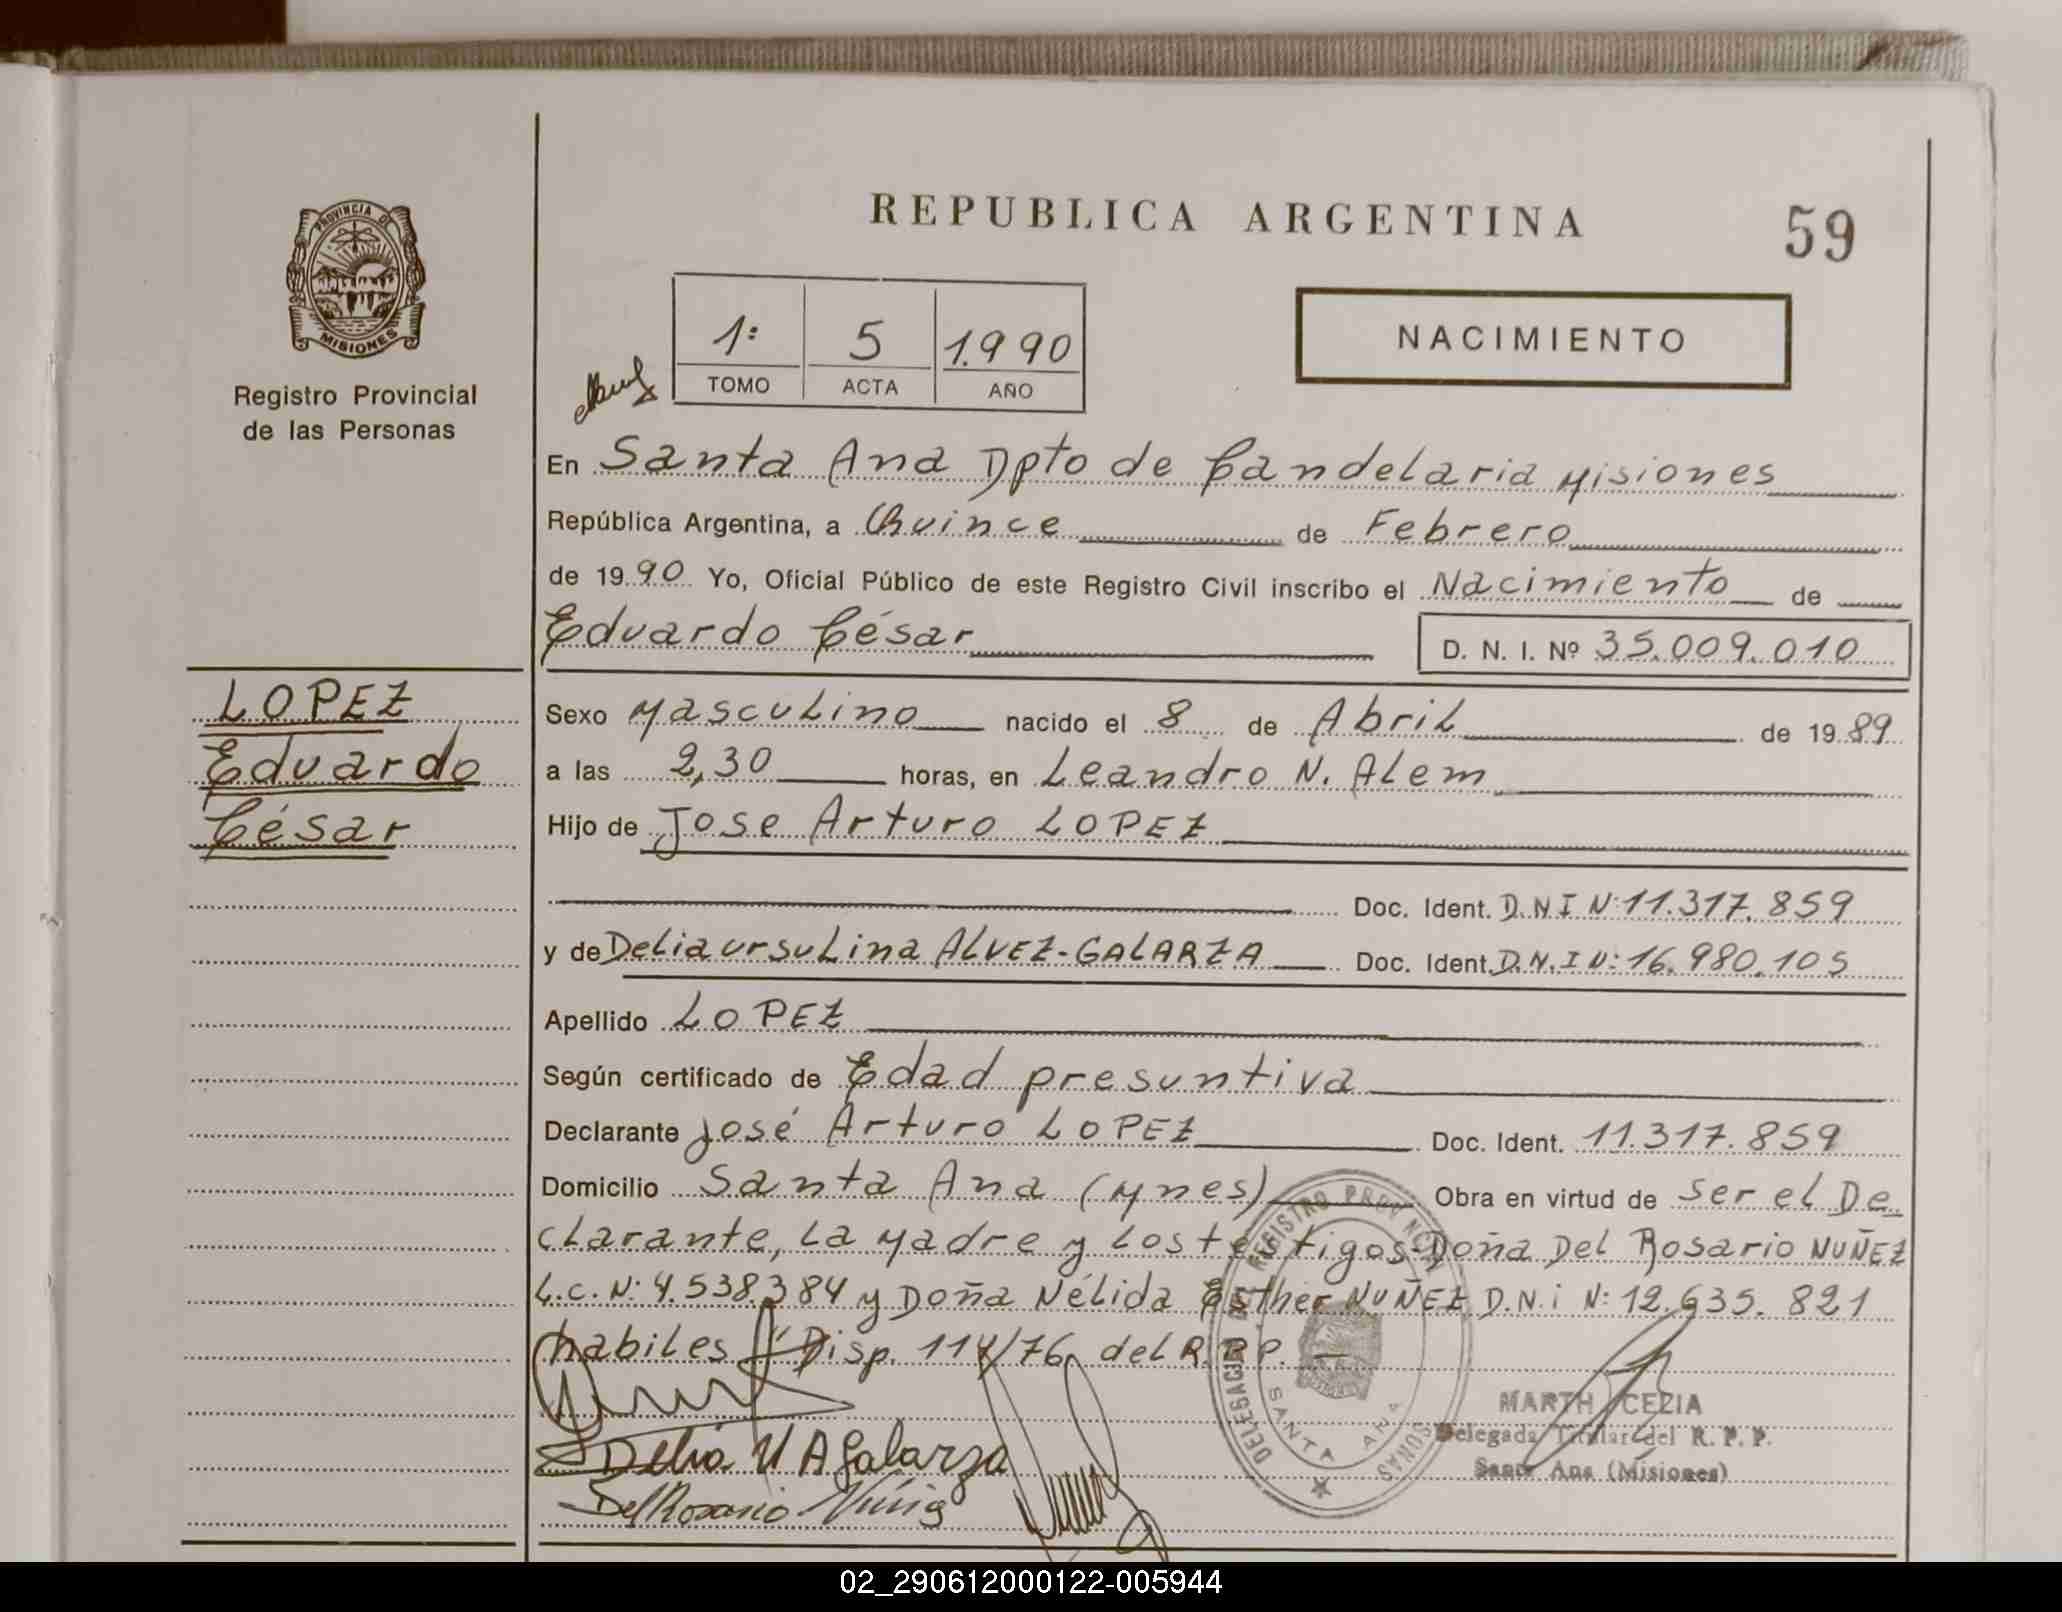 REPUBLICA ARGENTINA
59
PROVINCIA D
MISIONES
Registro Provincial
de las Personas
1: 5 1.990
TOMO ACTA AÑO
NACIMIENTO
En Santa Ana Dpto de Candelaria Misiones
República Argentina, a Quince de Febrero
de 19 90 Yo, Oficial Público de este Registro Civil inscribo el Nacimiento de
Eduardo César D. N. I. Nº 35.009.010
LOPEZ
Eduardo
César
Sexo Masculino nacido el 8 de Abril de 19 89
a las 2,30 horas, en Leandro N. Alem
Hijo de Jose Arturo LOPEZ
Doc. Ident. D.N.I N: 11.317.859
y de Delia Ursulina ALVEZ-GALARZA Doc. Ident. D.N.I N: 16.980.105
Apellido LOPEZ
Según certificado de Edad presuntiva
Declarante José Arturo LOPEZ Doc. Ident. 11.317.859
Domicilio Santa Ana (Mnes) Obra en virtud de ser el De
clarante, La Madre y Los testigos Doña Del Rosario NUÑEZ
L.C. N: 4.538.384 y Doña Nélida Esther NUÑEZ D.N.i N: 12.635.821
habiles Disp. 114/76 del R.P.P.
DELEGACION DEL REGISTRO PROVINCIAL
SANTA ANA
Delia U A Galarza
Del Rosario
MARTH CEZIA
Delegada Titular del R. P. P.
Santa Ana (Misiones)
02_290612000122-005944